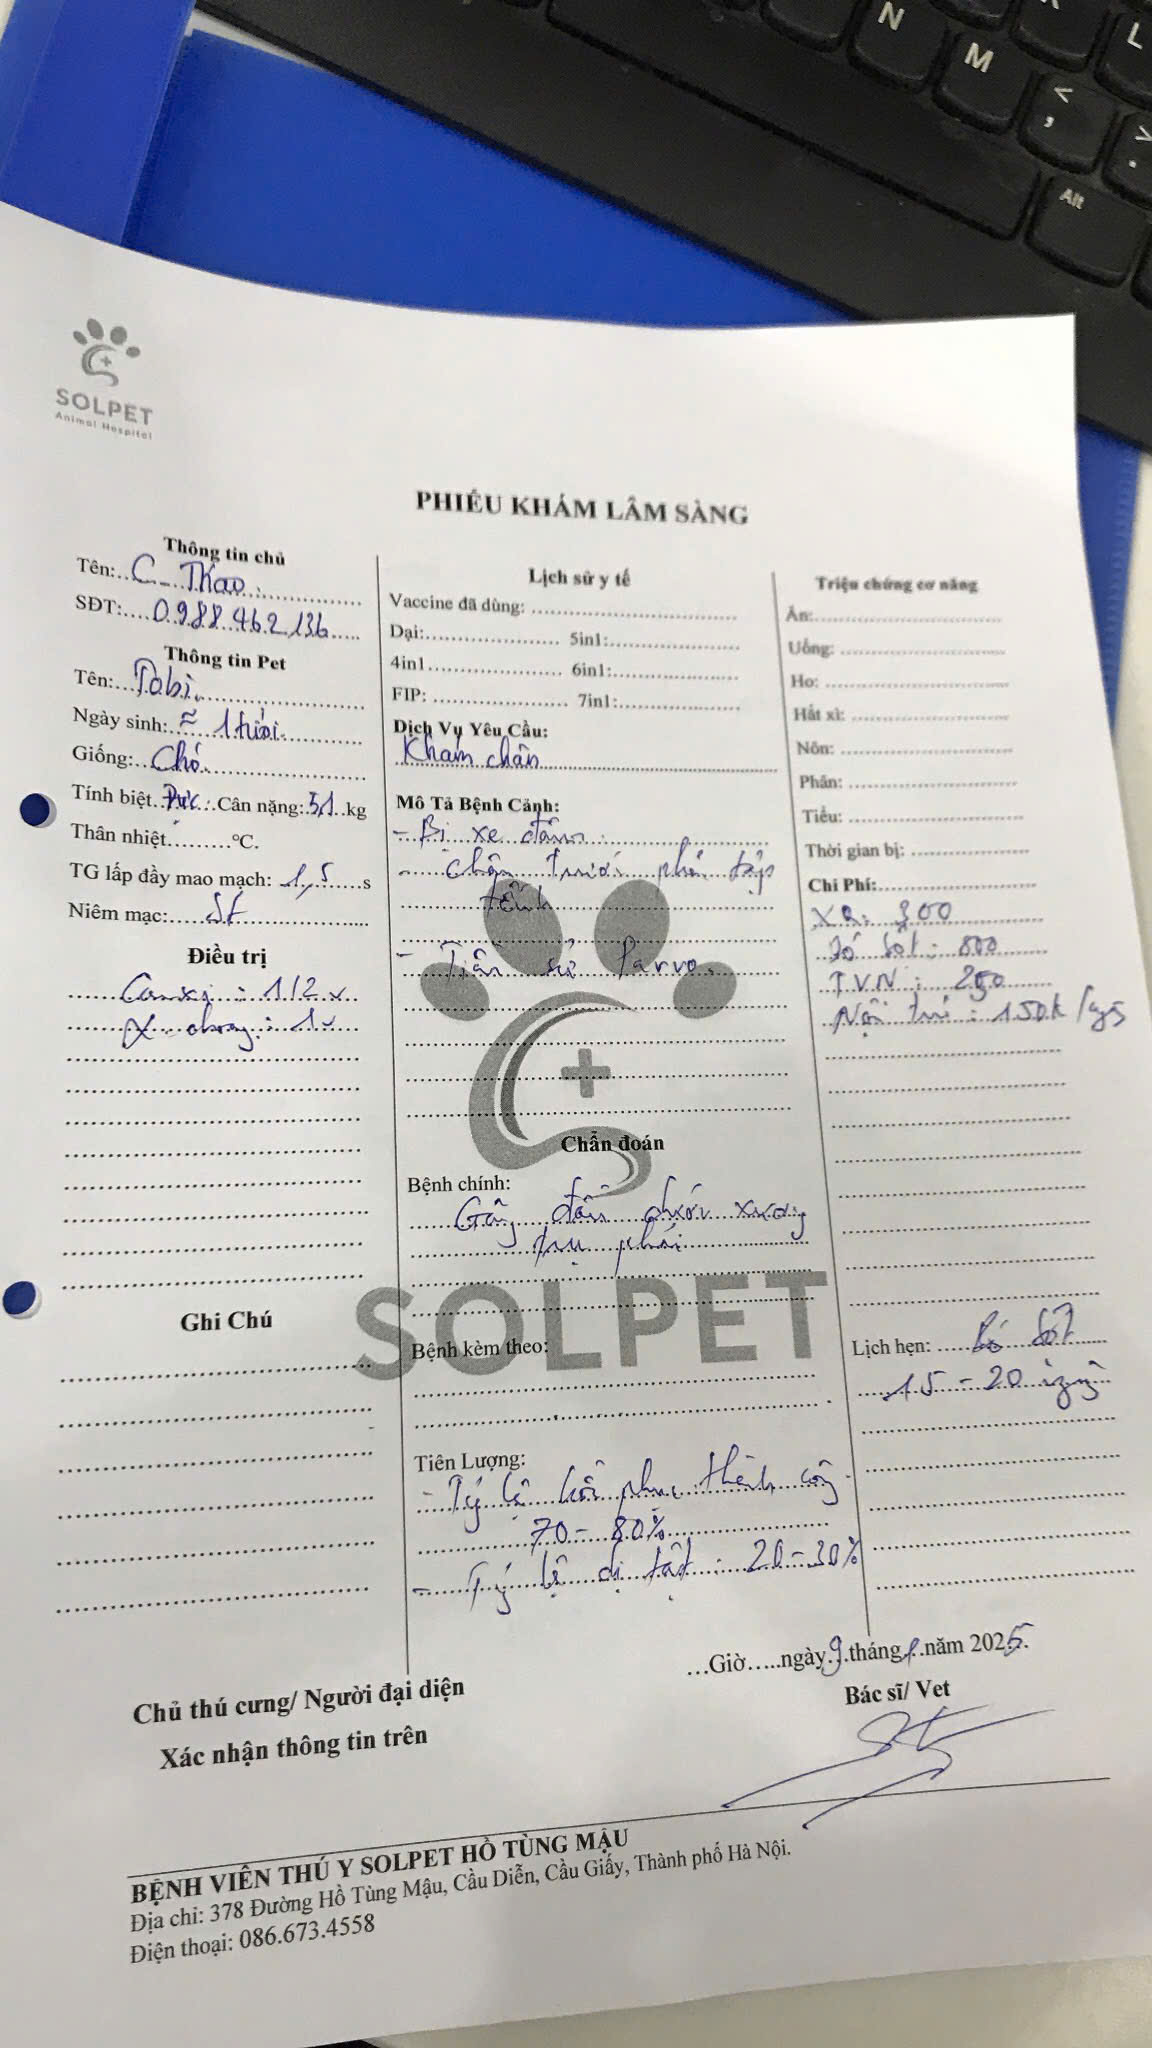 N
M
K
L
<
,
>
.
Alt
SOLPET
Animal Hospital
PHIẾU KHÁM LÂM SÀNG
Thông tin chủ
Tên: C. Thao.
SĐT: 0988462136
Thông tin Pet
Tên: Tobi.
Ngày sinh: ≈ 1 tuổi.
Giống: Chó.
Tính biệt Đực Cân nặng: 5,1 kg
Thân nhiệt.........°C.
TG lấp đầy mao mạch: 1,5 s
Niêm mạc:
Điều trị
Canxi : 1/2 v
α choay : 1v
Ghi Chú
Lịch sử y tế
Vaccine đã dùng:
Dại: 5in1:
4in1 6in1:
FIP: 7in1:
Dịch Vụ Yêu Cầu:
Khám chân
Mô Tả Bệnh Cảnh:
- Bị xe đâm.
- chân trước phải tập
tễnh
- Tiền sử Parvo.
Chẩn đoán
Bệnh chính:
Gãy đầu dưới xương
trụ phải.
SOLPET
Bệnh kèm theo:
Tiên Lượng:
- Tỷ lệ hồi phục thành công
70 - 80%
- Tỷ lệ dị tật : 20-30%
Triệu chứng cơ năng
Ăn:
Uống:
Ho:
Hắt xì:
Nôn:
Phân:
Tiểu:
Thời gian bị:
Chi Phí:
XQ: 300
Bó bột : 800
TVN : 250
Nội trú : 150k/ngày
Lịch hẹn: Bó bột
15 - 20 ngày
...Giờ.....ngày 9 tháng 1 năm 2025.
Chủ thú cưng/ Người đại diện
Xác nhận thông tin trên
Bác sĩ/ Vet
BỆNH VIÊN THÚ Y SOLPET HỒ TÙNG MẬU
Địa chỉ: 378 Đường Hồ Tùng Mậu, Cầu Diễn, Cầu Giấy, Thành phố Hà Nội.
Điện thoại: 086.673.4558